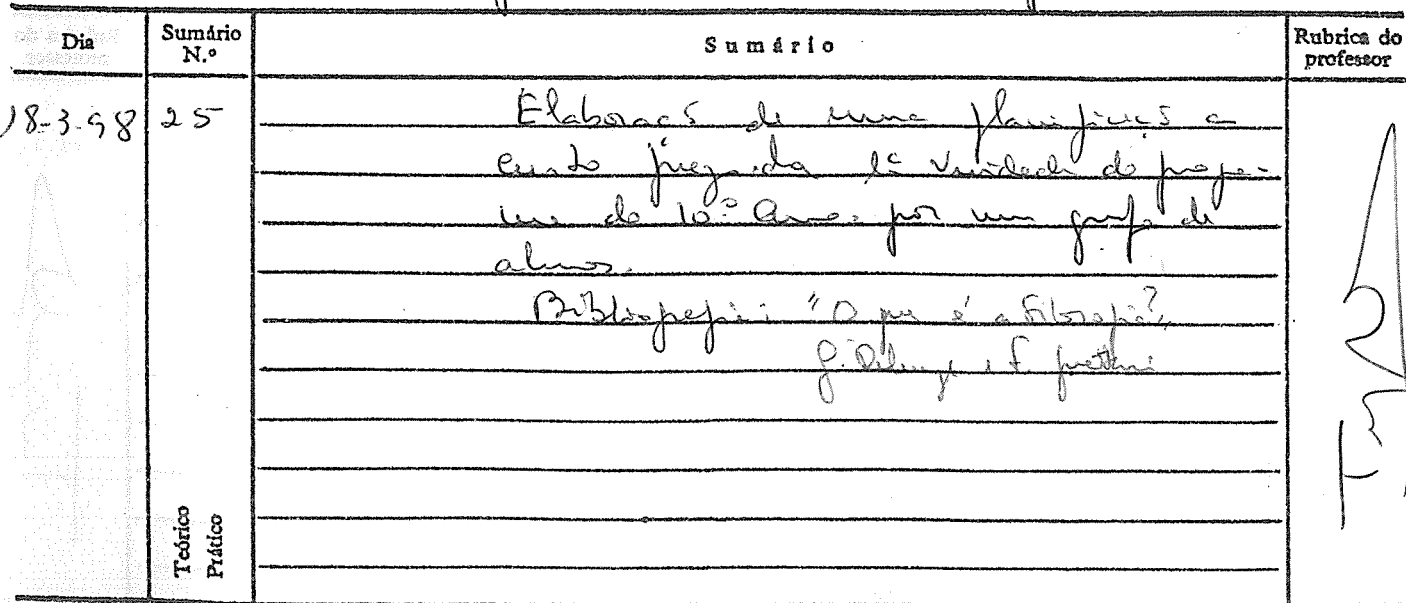 Dia
Sumário N.º
Sumário
Rubrica do professor
18-3-98
25
Elaboração de uma planificação a
curto prazo da 1ª Unidade do progra-
ma do 10º Ano, por um grupo de
alunos.
Bibliografia: "O que é a Filosofia?"
G. Deleuze e F. Guattari
Teórico
Prático